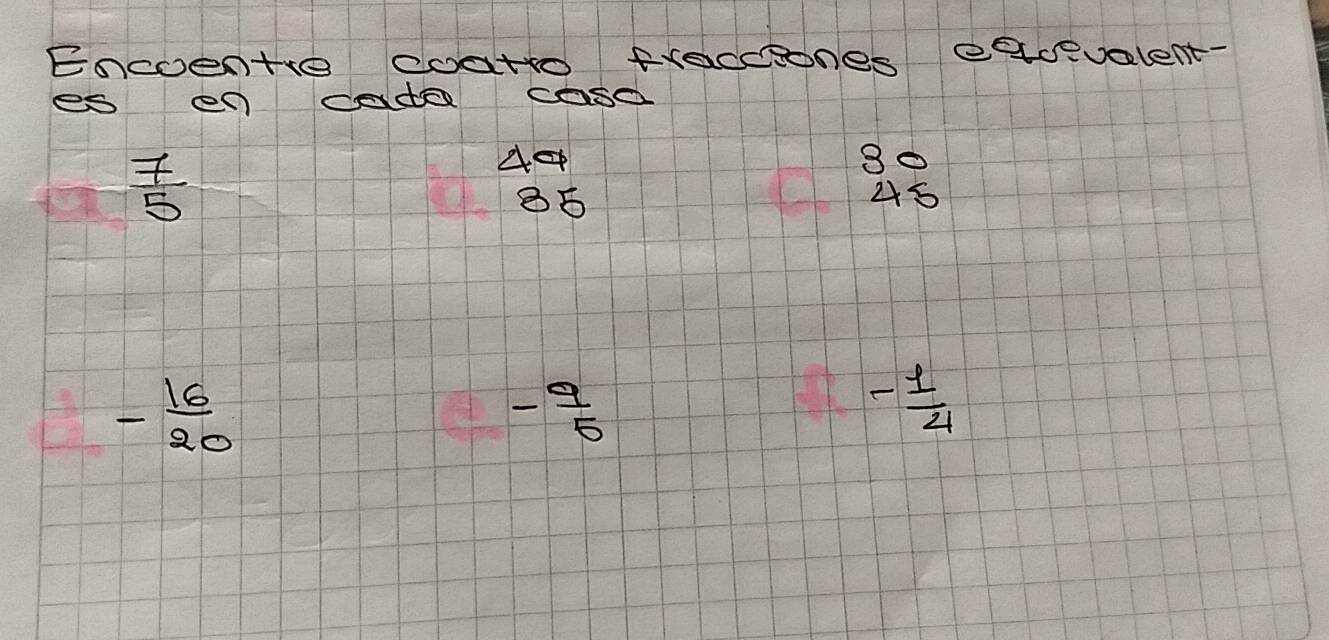 Encuentre cuatro fracciones equivalent-
es en cada caso
a. 7/5 b. 49 85 c. 30 45
d. - 16/20 e. - 9/5 f. - 1/4